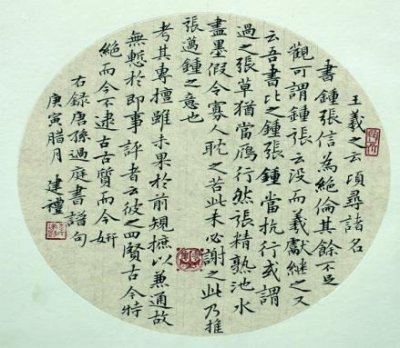 王羲之云頃尋諸名
書鍾張信為絕倫其餘不足
觀可謂鍾張云没而羲獻繼之又
云吾書比之鍾張鍾當抗行或謂
過之張草猶當鴈行然張精熟池水
盡墨假令寡人耽之若此未必謝之此乃推
張邁鍾之意也
考其專擅雖未果於前規摭以兼通故
無慙於即事評者云彼之四賢古今特
絕而今不逮古古質而今妍
右録唐孫過庭書譜句
庚寅腊月 建禮